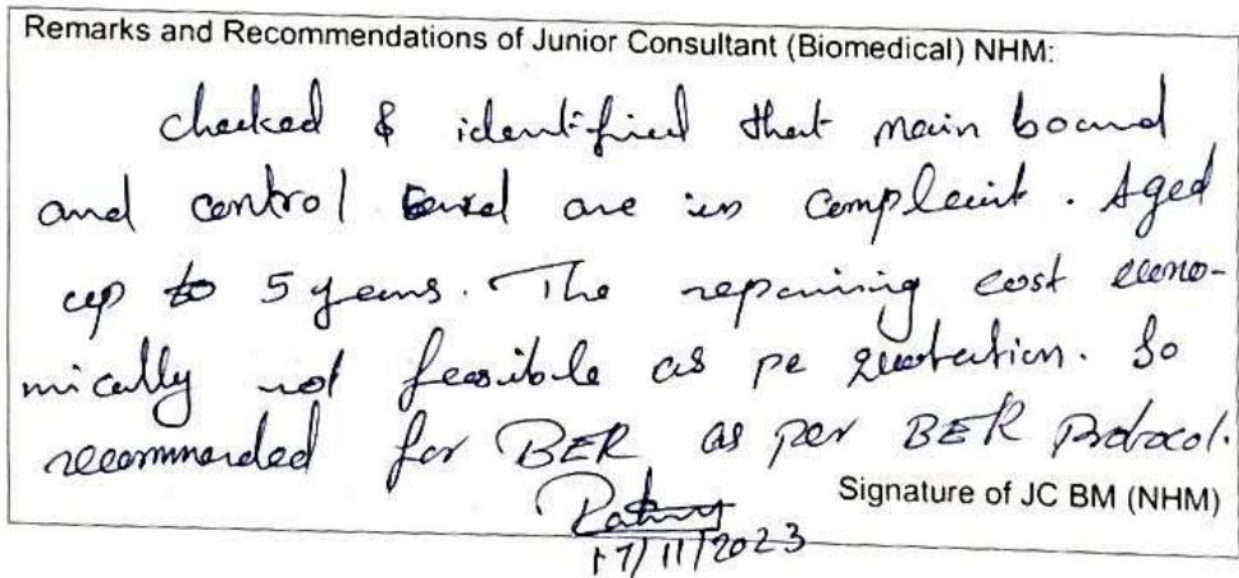 Remarks and Recommendations of Junior Consultant (Biomedical) NHM:
checked & identified that main board
and control board are in complaint. Aged
up to 5 years. The repairing cost econo-
mically not feasible as pe quotation. So
recommended for BER as per BER Protocol.
Signature of JC BM (NHM)
17/11/2023